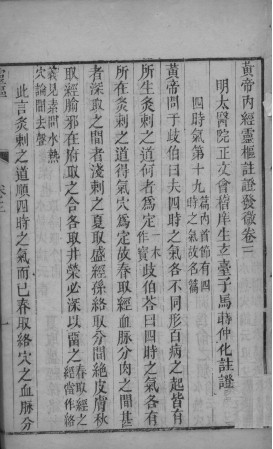 黄帝內經靈樞註證發微卷三
明太醫院正文會稽庠生玄臺子馬蒔仲化註證
四時氣第十九篇內首節有四時之氣故名篇
黄帝問于歧伯曰夫四時之氣各不同形百病之起皆有
所生灸刺之道何者爲定一本作寳歧伯荅曰四時之氣各有
所在灸刺之道得氣穴爲定故春取經血脉分肉之間甚
者深取之間者淺刺之夏取盛經孫絡取分間絶皮膚秋
取經腧邪在府取之合冬取井滎必深以留之春取經之經當作絡
義見素問水熱穴論間去聲
此言灸刺之道順四時之氣而已春取絡穴之血脉分